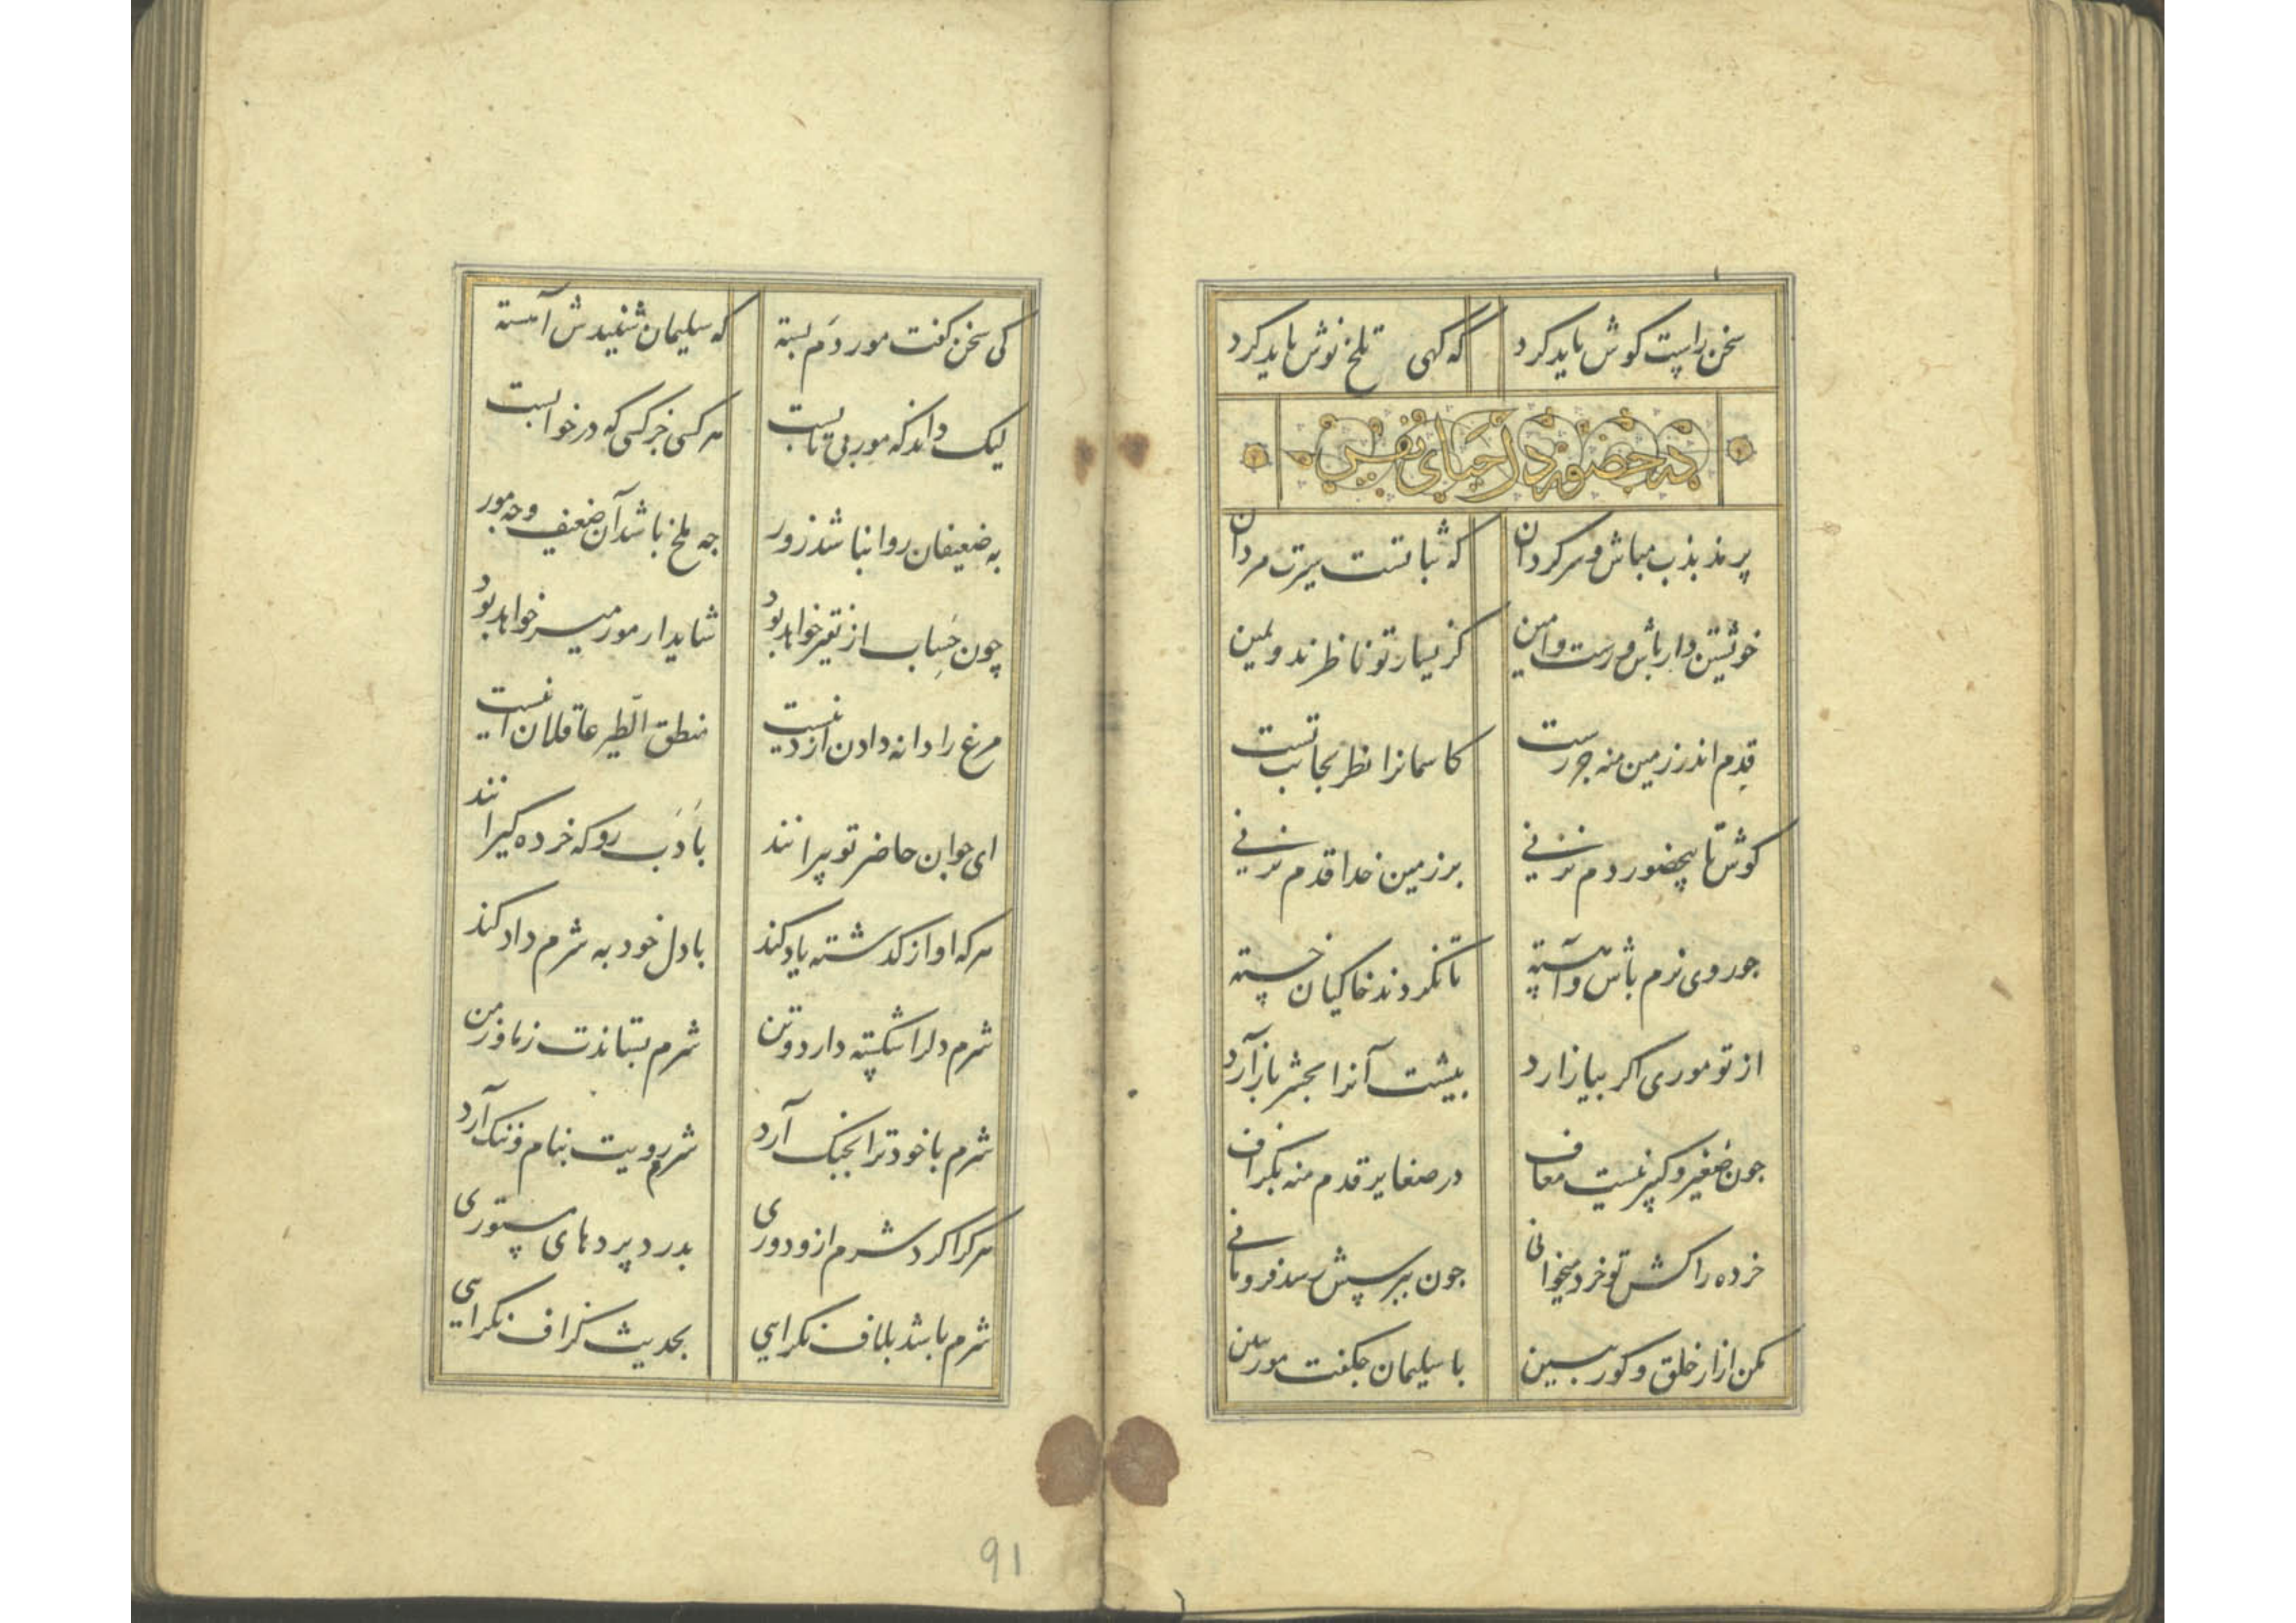 سخن راست کوش باید کرد که کهی تلخ نوش باید کرد
در حضور دل احیای نفس
پر مذبذب مباش و سرکردان که ثباتست سیرت مردان
خویشتن دار باش و رست و امین کز یسار تو ناظرند و یمین
قدم اندر زمین منه جز رست کاسمانرا نظر بجانب تست
کوش تا بیحضور دم نزنی بر زمین خدا قدم نزنی
جو روی نرم باش و آهسته تا نکردند خاکیان خسته
از تو موری اکر بیازارد بیشت آنرا بحشر باز آرد
جون صغیر و کبیر نیست معاف در صغایر قدم منه بکزاف
خرده را کش تو خرد میخوانی جون ببرسش رسد فرو مانی
مکن ازار خلق و کور ببین با سلیمان جکفت مور ببین
کی سخن کفت مور دم بسته که سلیمان شنیدش آهسته
لیک داند که مور بی تابست هر کسی جز کسی که در خوابست
به ضعیفان روا نباشد زور جه ملخ باشد آن ضعیف و جه مور
چون حساب از نقیر خواهد بود شاید ار مور میر خواهد بود
مرغ را دانه دادن از دینست منطق الطیر عاقلان اینست
ای جوان حاضر تو پیرانند با ادب رو که خرده کیرانند
هر که او از کذشته یاد کند با دل خود به شرم داد کند
شرم دلرا شکسته دارد و تن شرم بستاندت ز ما و ز من
شرم با خود ترا بجنک آرد شرم رویت بنام و ننک آرد
هر کرا کرد شرم ازو دوری بدرد پردهای مستوری
شرم باشد بلاف نکرایی بحدیث کزاف نکرایی
91